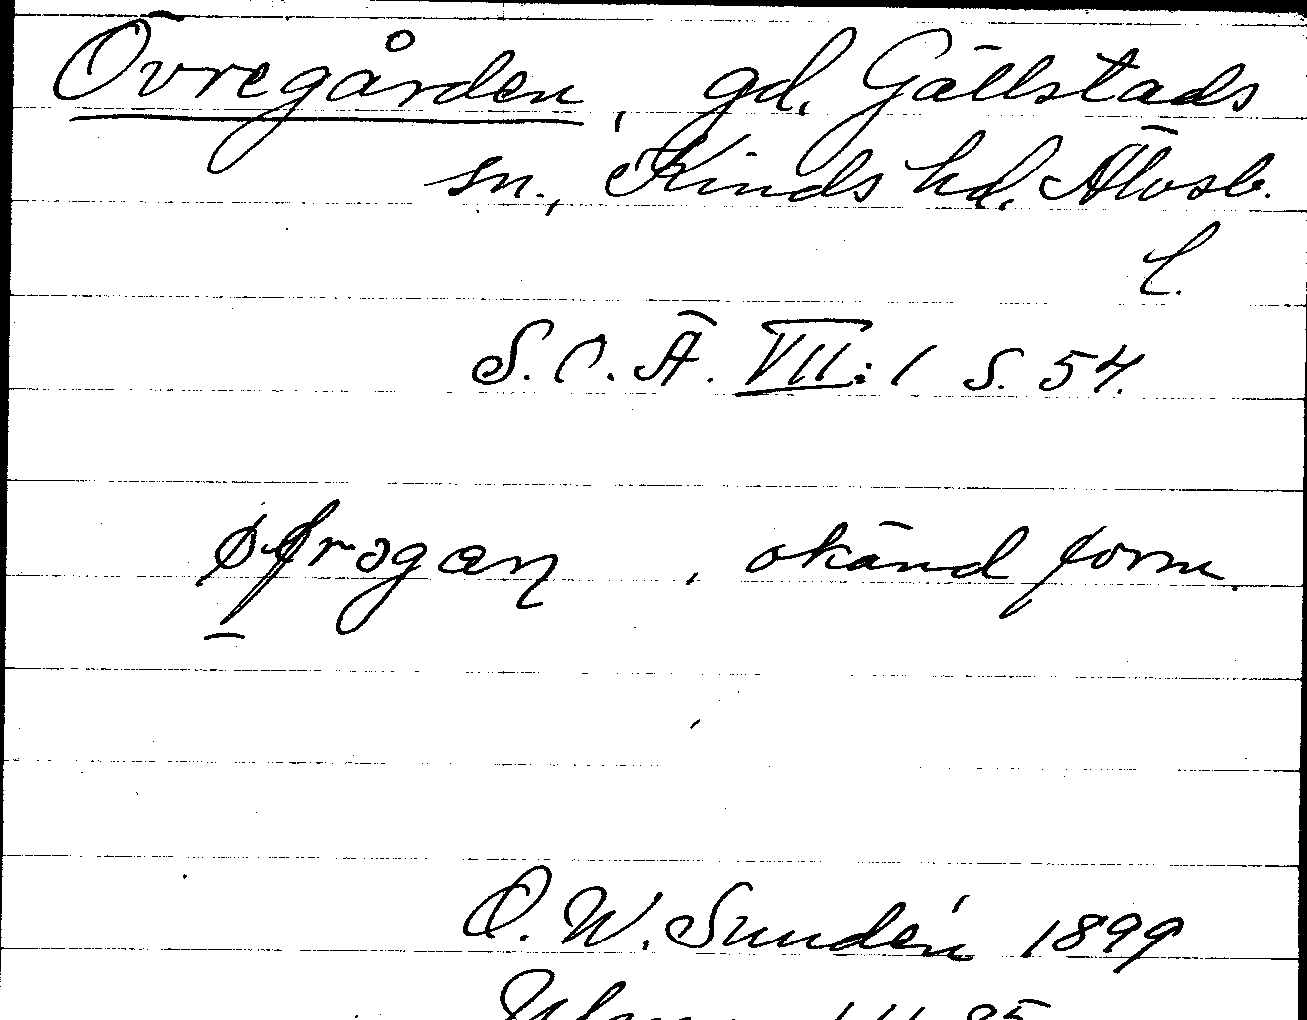 Övregården, gd, Gällstads
sn., Kinds hd. Älvsb.
l.
S. O. Ä. VII: 1 s. 54.
, okänd form.
D. W. Sundén 1899